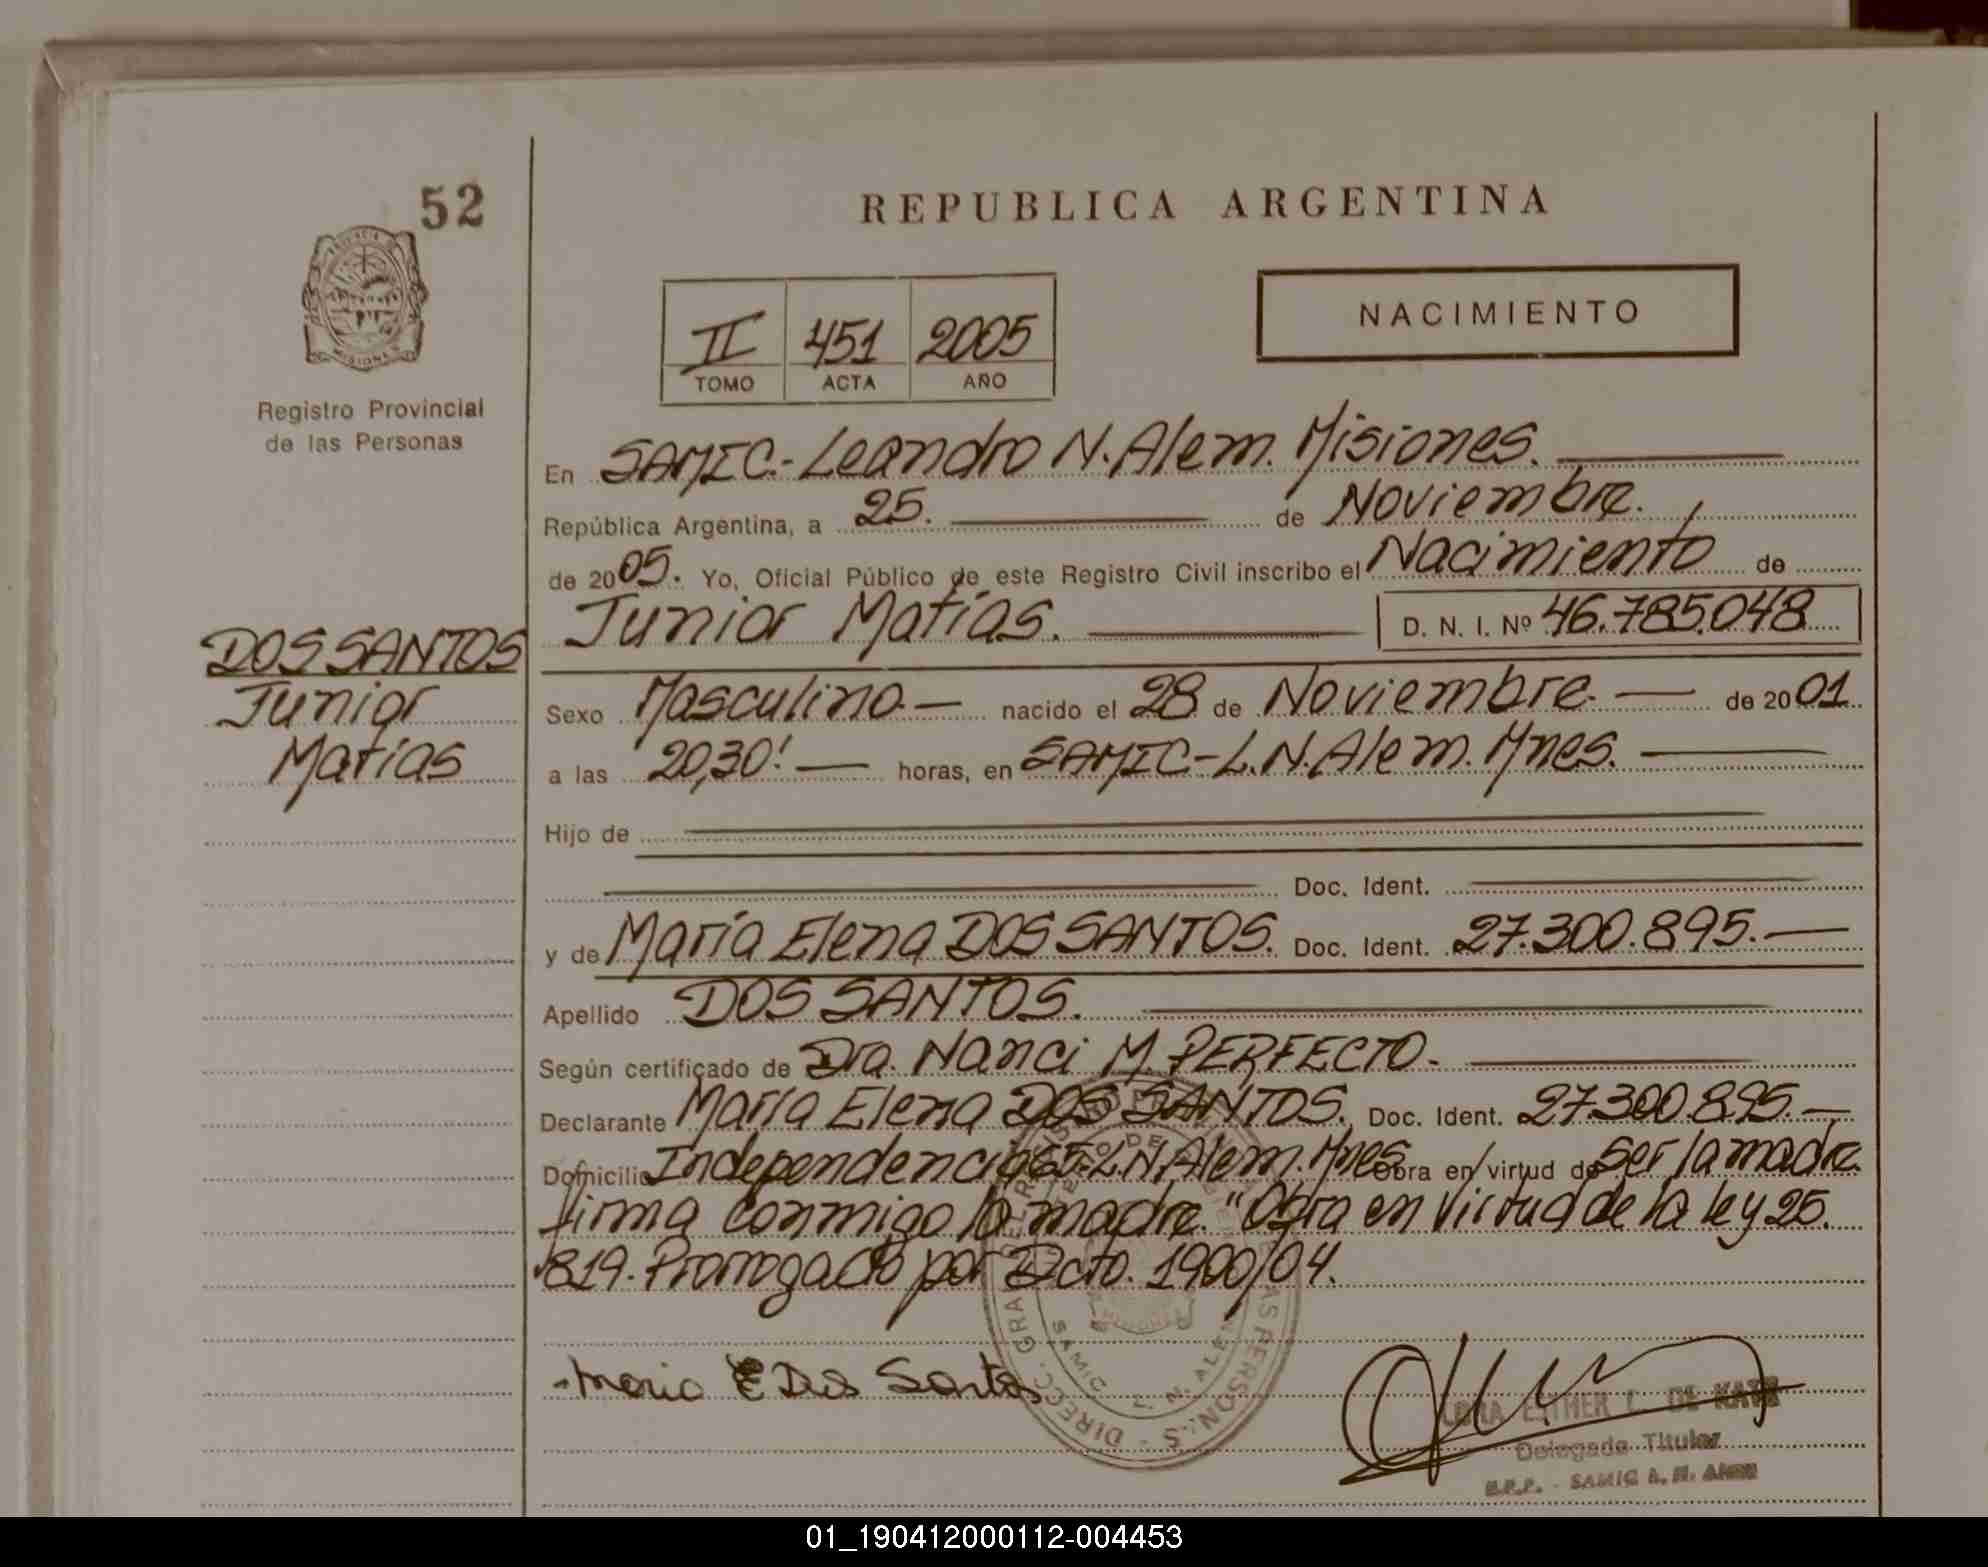 52
REPUBLICA ARGENTINA
NACIMIENTO
II 451 2005
TOMO ACTA AÑO
Registro Provincial
de las Personas
En SAMIC.-Leandro N. Alem. Misiones.
República Argentina, a 25. de Noviembre.
de 2005. Yo, Oficial Público de este Registro Civil inscribo el Nacimiento de
Junior Matías. D. N. I. Nº 46.785.048
DOS SANTOS
Junior
Matías
Sexo Masculino.- nacido el 28 de Noviembre.- de 2001
a las 20,30'.- horas, en SAMIC-L.N.Alem. Mnes.
Hijo de
Doc. Ident.
y de María Elena DOS SANTOS. Doc. Ident. 27.300.895.-
Apellido DOS SANTOS.
Según certificado de Dra. Nanci M. PERFECTO.
Declarante María Elena DOS SANTOS. Doc. Ident. 27.300.895.-
Domicilio Independencia 965-L.N.Alem. Mnes. Obra en virtud de Ser la madre
firma conmigo la madre. "Obra en virtud de la ley 25.
819. Prorrogado por Dcto. 1900/04.
Maria E Dos Santos
ESTHER L. DE
Delegada Titular
R.P.P. - SAMIC L. N. ALEM
01_190412000112-004453